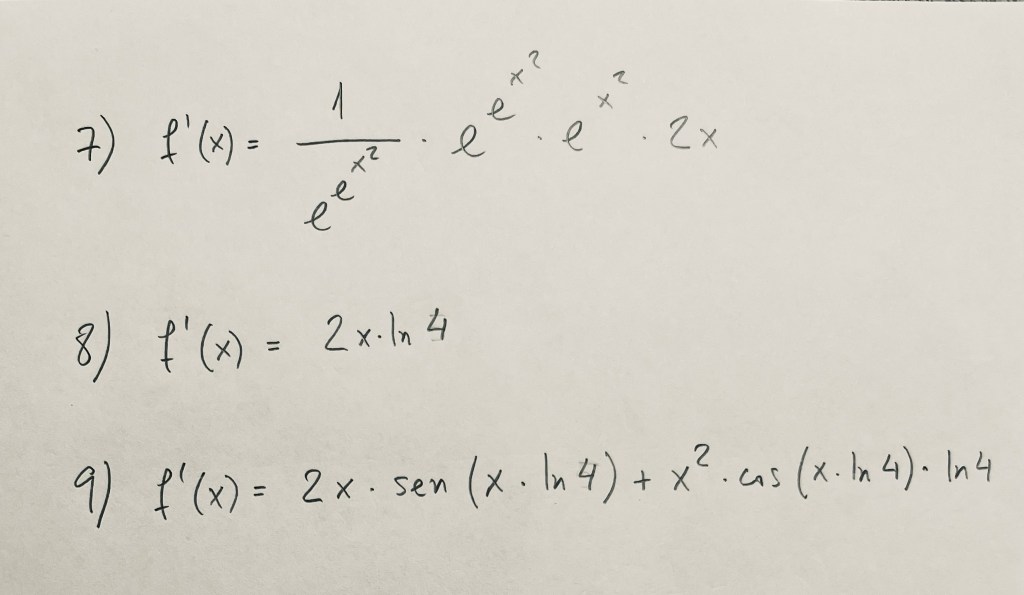 7) f'(x) = 1/e^e^x² · e^e^x² · e^x² · 2x
8) f'(x) = 2x·ln 4
9) f'(x) = 2x · sen (x · ln 4) + x² · cos (x · ln 4) · ln 4